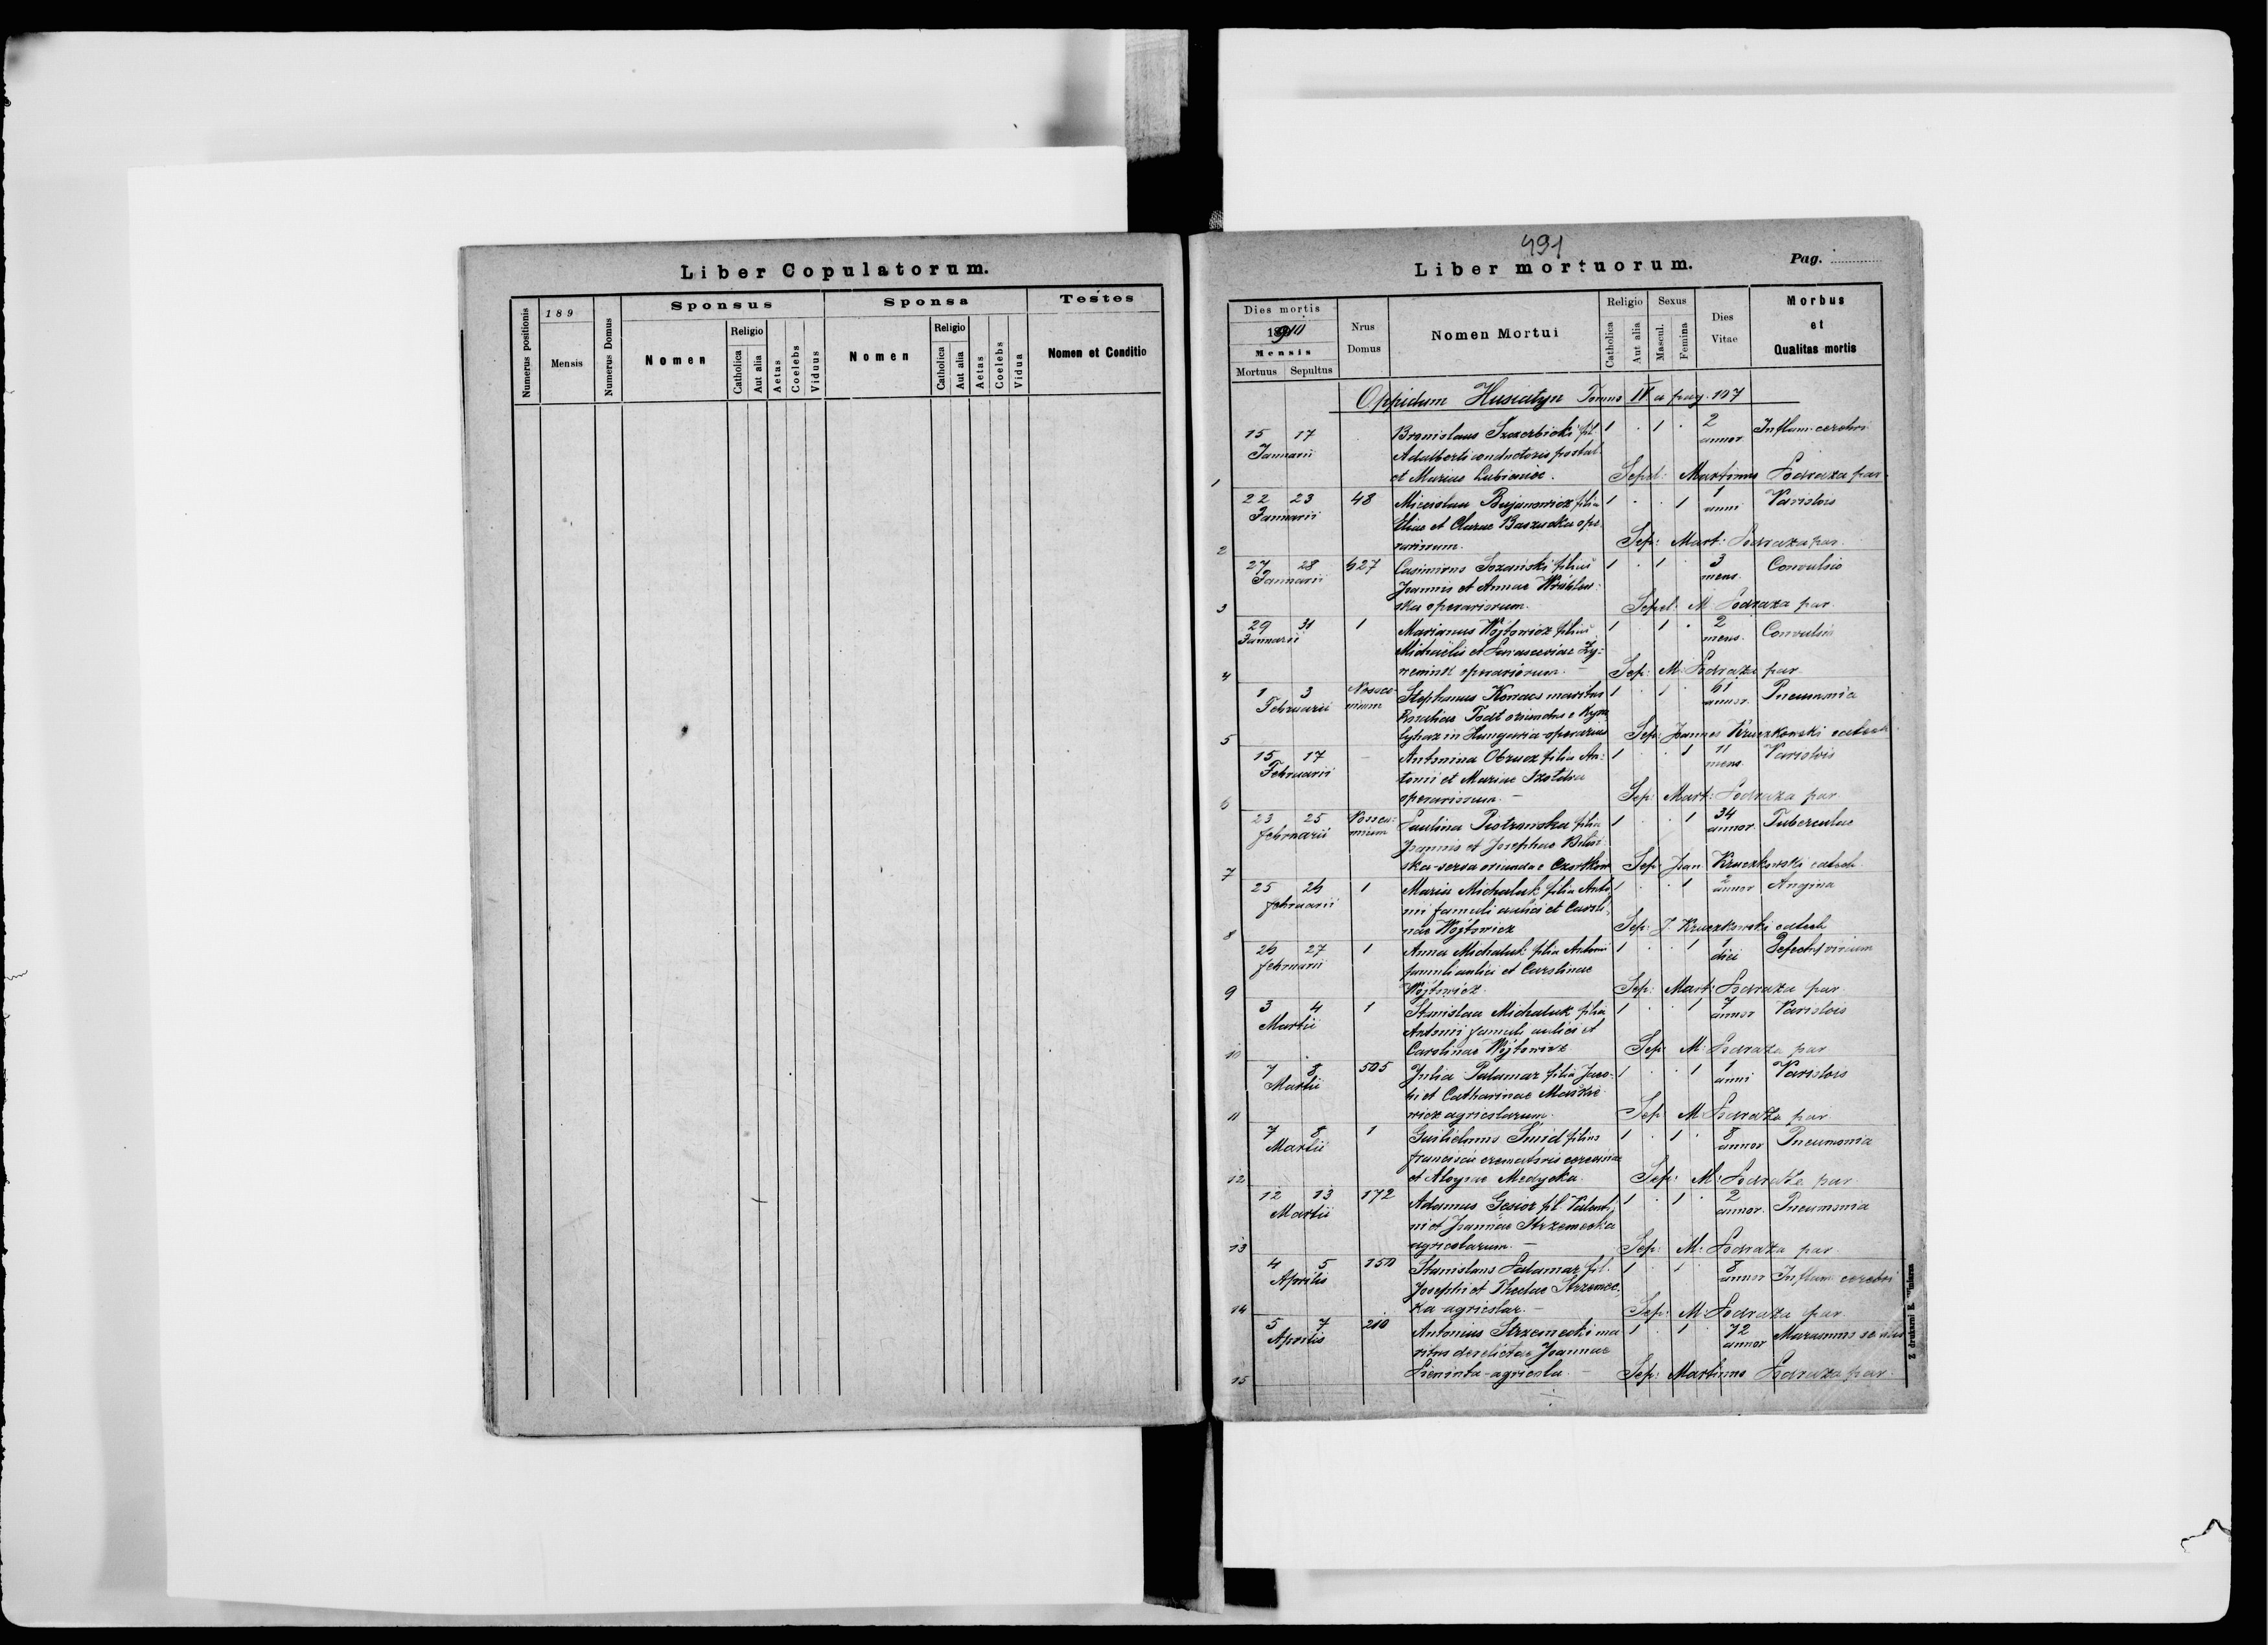 Liber Copulatorum.
Numerus positionis
189
Mensis
Numerus Domus
Sponsus
Nomen
Religio
Catholica
Aut alia
Aetas
Coelebs
Viduus
Sponsa
Nomen
Religio
Catholica
Aut alia
Aetas
Coelebs
Vidua
Testes
Nomen et Conditio
491
Liber mortuorum.
Pag.
Dies mortis
Mensis
Mortuus Sepultus
Nrus Domus
Nomen Mortui
Religio
Catholica
Aut alia
Sexus
Mascul.
Femina
Dies Vitae
Morbus
et
Qualitas mortis
Oppidum Husiatyn Tomus IV a pag. 107
15 17 Bronislaus Szczerbicki fil. 1 . 1 . 2 Inflam. cerebri
Januarii Adalberti conductoris postal. annor
1 et Mariae Sepel: Martinus Podraza par.
22 23 48 filia 1 . . 1 1 Variolois
Januarii Eliae et Clarae ope- anni
2 rariorum. Sep: Mart: Podraza par.
27 28 627 Casimirus Sozański filius 1 . 1 . 3 Convulsio
Januarii Joannis et Annae mens.
3 ska operariorum. Sepel: M. Podraza par.
29 31 1 Marianus Wójtowicz filius 1 1 . 2 Convulsio
Januarii Michaëlis et mens.
4 operariorum. — Sep: M. Podraza par.
1 3 Nosoco- Stephanus Kovacs maritus 1 . 1 . 61 Pneumonia
Februarii mium Rosaliae oriundus e annor.
5 in Hungaria operarius Sep: Joannes Kruczkowski catech
15 17 — Antonina Obrucz filia An- 1 . . 1 11 Variolois
Februarii tonii et Mariae mens.
6 operariorum. — Sep: Mart: Podraza par.
23 25 Nosoco- Paulina Piotrowska filia 1 . . 1 34 Tuberculae
februarii mium Joannis et Josephae annor
7 ska serva oriunda e Czortkow Sep: Joan Kruczkowski catech.
25 26 1 Maria Michaluk filia Anto- 1 . . 1 2 Angina
februarii nii famuli aulici et Caroli- annor
8 nae Wójtowicz Sep: J. Kruczkowski catech
26 27 1 Anna Michaluk filia Antonii 1 . . 1 1 Defectus virium
februarii famuli aulici et Carolinae diei
9 Wójtowicz. Sep: Mart: Podraza par.
3 4 1 Stanislaa Michaluk filia 1 . . 1 7 Variolois
Martii Antonii famuli aulici et annor
10 Carolinae Wójtowicz Sep: M. Podraza par
7 8 505 Julia Palamar filia Jaco- 1 . . 1 1 Variolois
Martii bi et Catharinae anni
11 wicz agricolarum. Sep: M. Podraza par.
7 8 1 Guilielmus Śmid filius 1 . 1 . 8 Pneumonia
Martii Francisci crematoris cerevisiae annor
12 et Aloysae Medycka. Sep: M. Podraza par
12 13 172 Adamus Gesior fil. Valenti- 1 . 1 . 2 Pneumonia
Martii ni et Joannae Strzemecka annor.
13 agricolarum. — Sep: M. Podraza par
4 5 150 Stanislaus Palamar fil. 1 . 1 . 8 Inflam. cerebri
Aprilis Josephi et Theclae Strzemec- annor
14 ka agricolar. — Sep: M. Podraza par.
5 7 210 Antonius Strzemecki ma- 1 . 1 72 Marasmus senilis
Aprilis ritus derelictae Joannae annor
15 agricola. — Sep: Martinus Podraza par.